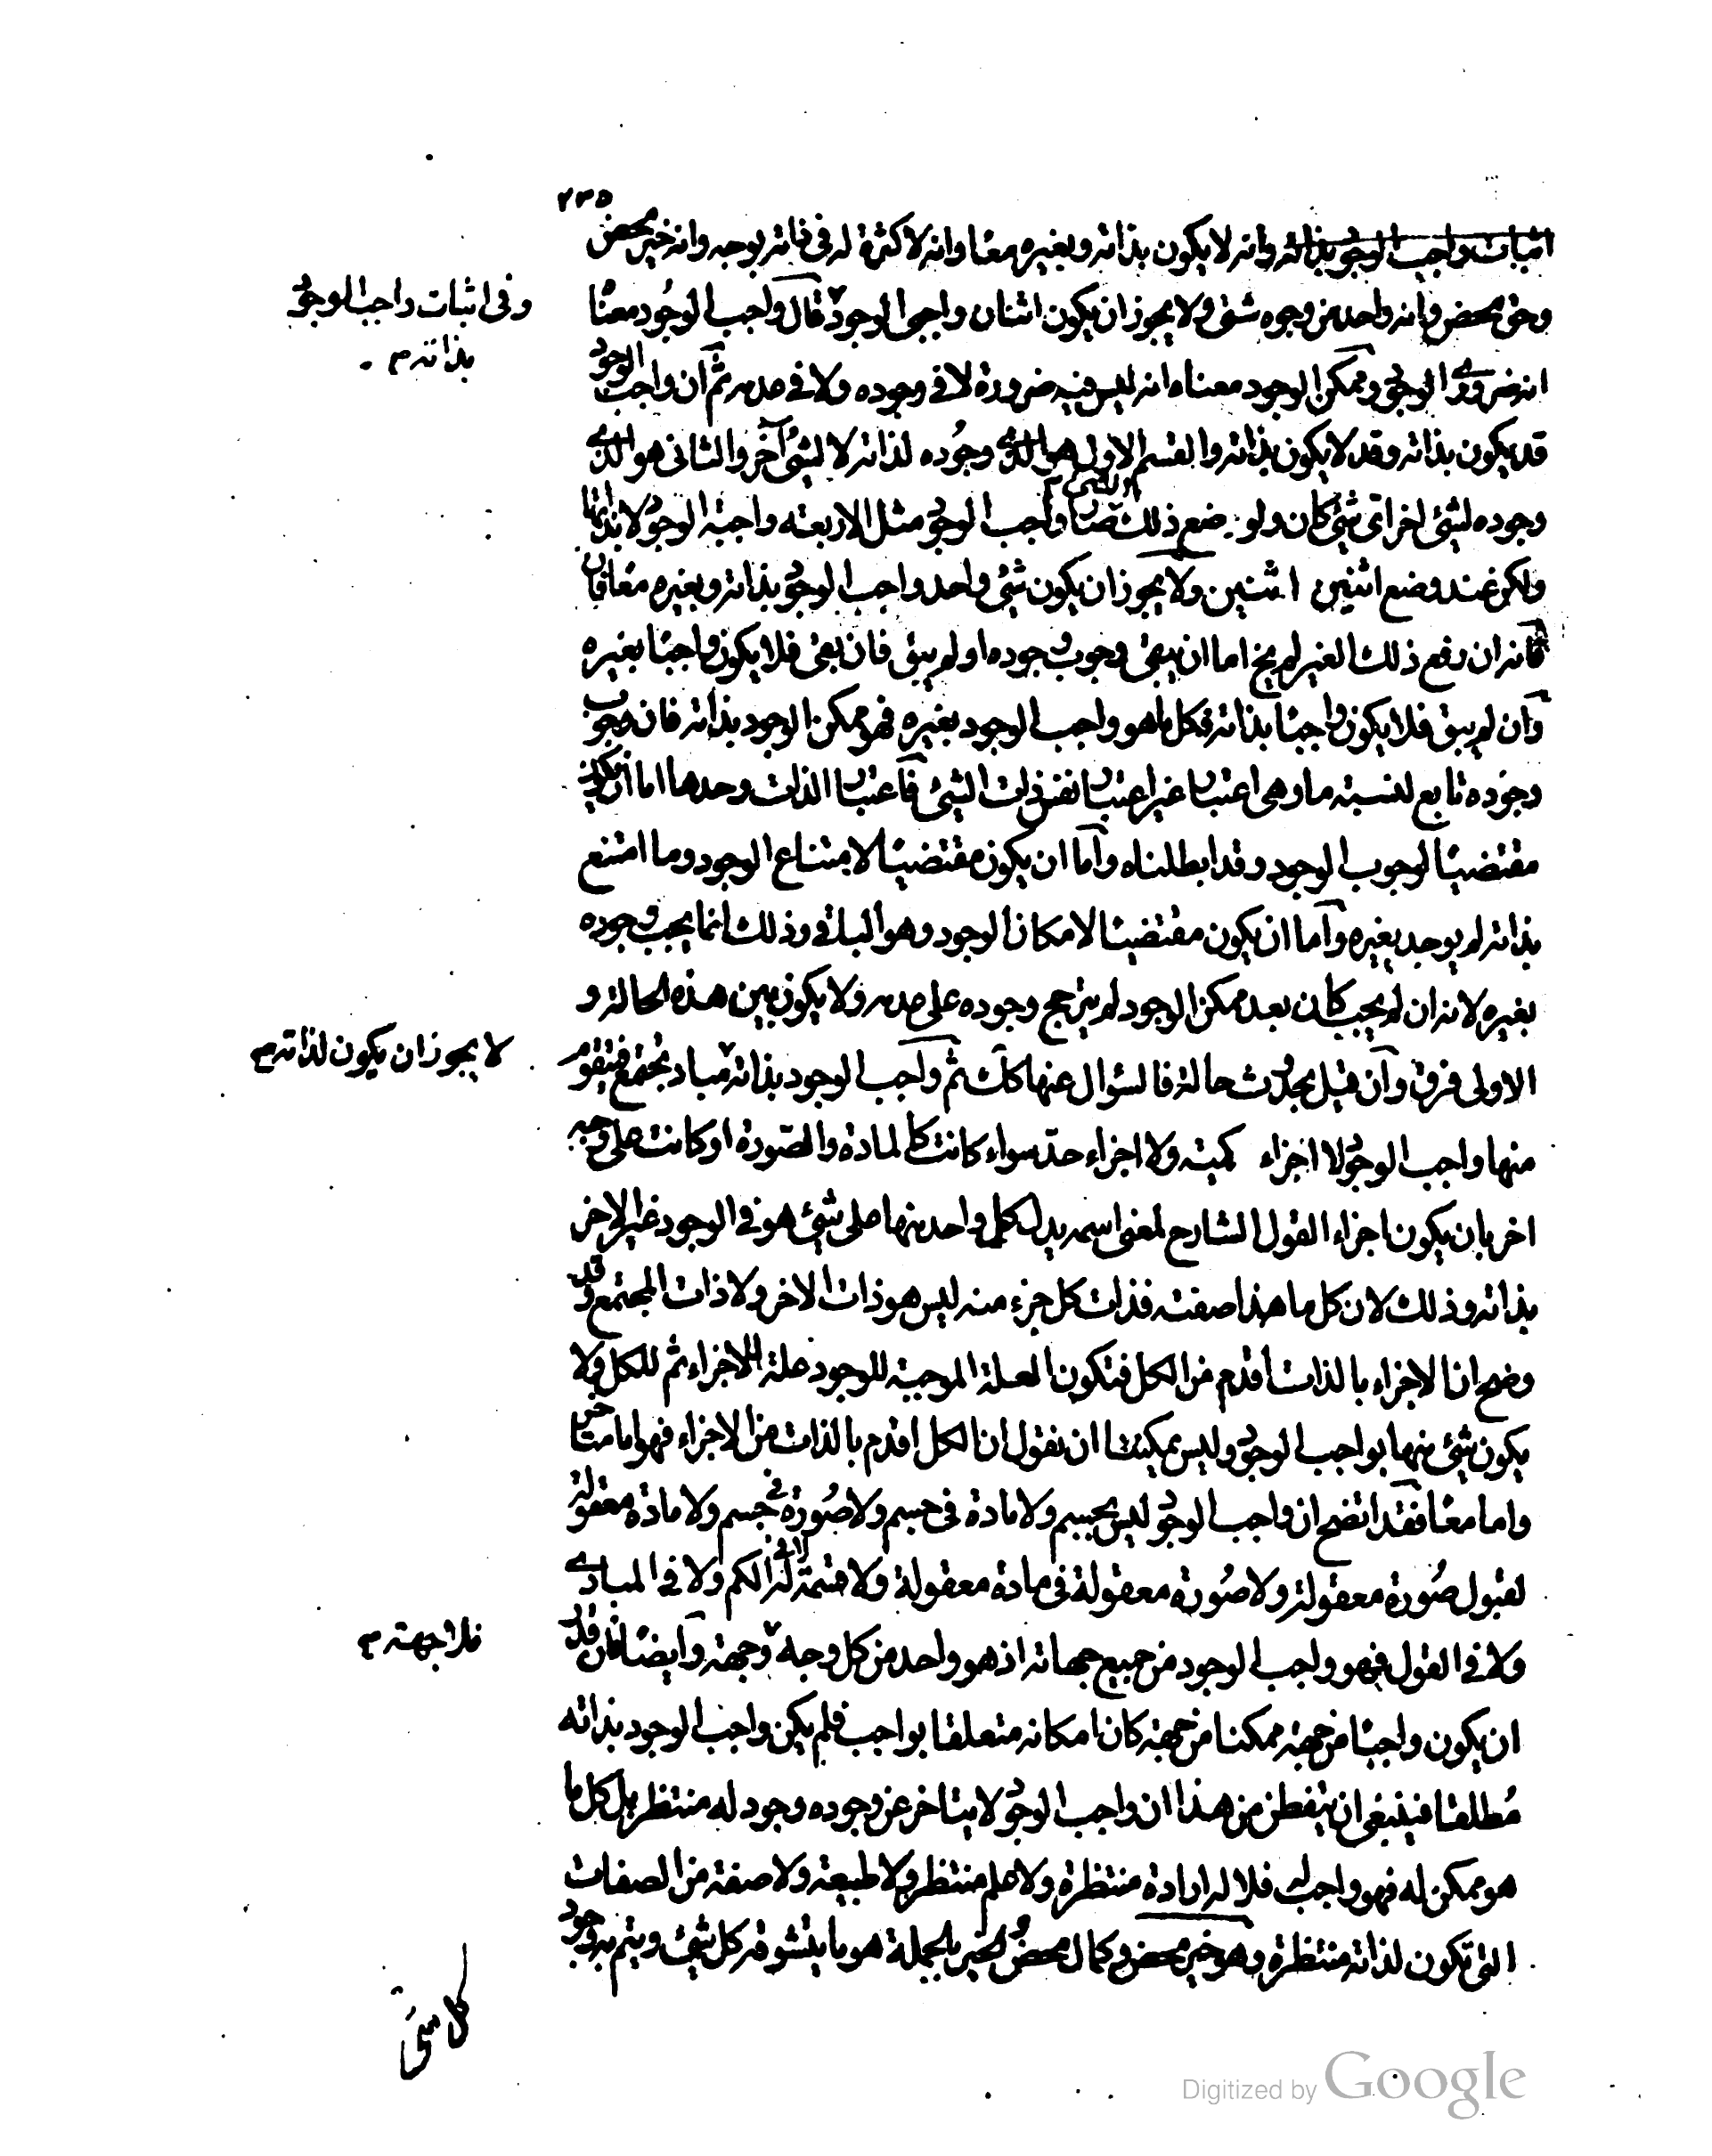 ٢٣٥
اثبات واجب الوجود بذاته وانه لا يكون بذاته وبغيره معا وانه لا كثرة له فى ذاته بوجه وانه خير محض
وحق محض وانه واحد من وجوه شتى ولا يجوز ان يكون اثنان واجبى الوجود قال واجب الوجود معناه
انه ضرورى الوجود وممكن الوجود معناه انه ليس فيه ضرورة لا فى وجوده ولا فى عدمه ثم ان واجب الوجود
قد يكون بذاته وقد لا يكون بذاته والقسم الاول هو الذى وجوده لذاته لا لشئ آخر والثانى هو الذى
وجوده لشئ اخر اى شئ كان ولو وضع ذلك الشئ م صار واجب الوجود مثل الاربعة واجبة الوجود لا بذاتها
ولكن عند وضع اثنين اثنين ولا يجوز ان يكون شئ واحد واجب الوجود بذاته وبغيره معا فان
فانه ان رفع ذلك الغير لم يخ اما ان يبقى وجوب وجوده او لم يبق فان بقى فلا يكون واجبا بغيره
وان لم يبق فلا يكون واجبا بذاته فكل ما هو واجب الوجود بغيره فهو ممكن الوجود بذاته فان وجوب
وجوده تابع لنسبة ما وهى اعتبار غير اعتبار نفس ذات الشئ فاعتبار الذات وحدها اما ان يكون
مقتضيا لوجوب الوجود وقد ابطلناه واما ان يكون مقتضيا لامتناع الوجود وما امتنع
بذاته لم يوجد بغيره واما ان يكون مقتضيا لامكان الوجود وهو الباقى وذلك انما يجب وجوده
بغيره لانه ان لم يجب كان بعد ممكن الوجود لم يترجح وجوده على عدمه ولا يكون بين هذه الحالة و
الاولى فرق وان قيل تجددت حالة فالسؤال عنها كذلك ثم واجب الوجود بذاته مباد تجتمع فيتقوم
منها واجب الوجود لا اجزاء كمية ولا اجزاء حد سواء كانت كالمادة والصورة او كانت على وجه
اخر بان يكون اجزاء القول الشارح لمعنى اسمه يدل كل واحد منها على شئ هو فى الوجود غير الاخر
بذاته وذلك لان كل ما هذا صفته فذات كل جزء منه ليس هو ذات الاخر ولا ذات المجتمع وقد
وضح ان الاجزاء بالذات اقدم من الكل فتكون العلة الموجبة للوجود علة للاجزاء ثم للكل ولا
يكون شئ منها بواجب الوجود وليس يمكننا ان نقول ان الكل اقدم بالذات من الاجزاء فهو اما متاخر
واما معا فقد اتضح ان واجب الوجود ليس بجسم ولا مادة فى جسم ولا صورة فى جسم ولا مادة معقولة
لقبول صورة معقولة ولا صورة معقولة فى مادة معقولة ولا قسمة له لا فى الكم ولا فى المبادى
ولا فى القول فهو واجب الوجود من جميع جهاته اذ هو واحد من كل وجه وجهة وايضا فان قدر
ان يكون واجبا من جهة ممكنا من جهة كان امكانه متعلقا بواجب فلم يكن واجب الوجود بذاته
مطلقا فينبغى ان يتفطن من هذا ان واجب الوجود لا يتاخر عن وجوده وجود له منتظر بل كل ما
هو ممكن له فهو واجب له فلا له ارادة منتظرة ولا علم منتظر ولا طبيعة ولا صفة من الصفات
التى تكون لذاته منتظرة وهو خير محض وكمال محض والخير بالجملة هو ما يتشوقه كل شئ ويتم به وجود
وفى اثبات واجب الوجود
بذاته م
لا يجوز ان يكون لذاته م
فلا جهة م
كل شئ
Digitized by Google